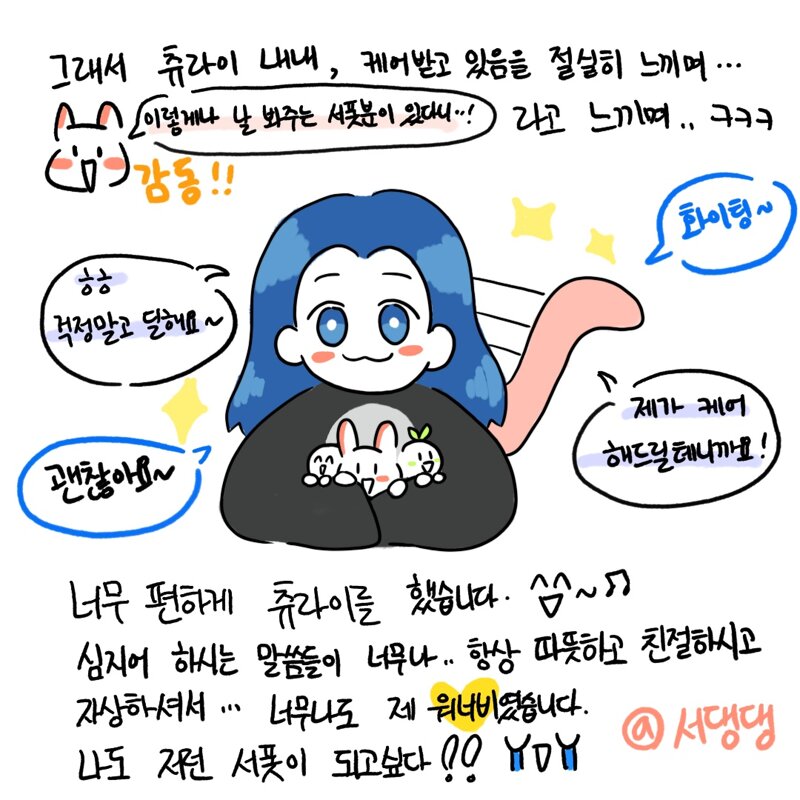 그래서 츄라이 내내, 케어받고 있음을 절실히 느끼며…
이렇게나 날 봐주는 서폿분이 있다니…!
라고 느끼며.. ㅋㅋㅋ
감동!!
화이팅~
ㅎㅎ
걱정말고 딜해요~
제가 케어
해드릴테니까요!
괜찮아요~
너무 편하게 츄라이를 했습니다. ^^~♫
심지어 하시는 말씀들이 너무나.. 항상 따뜻하고 친절하시고
자상하셔서… 너무나도 제 워너비였습니다.
나도 저런 서폿이 되고싶다!! ㅠㅁㅠ
@서댕댕